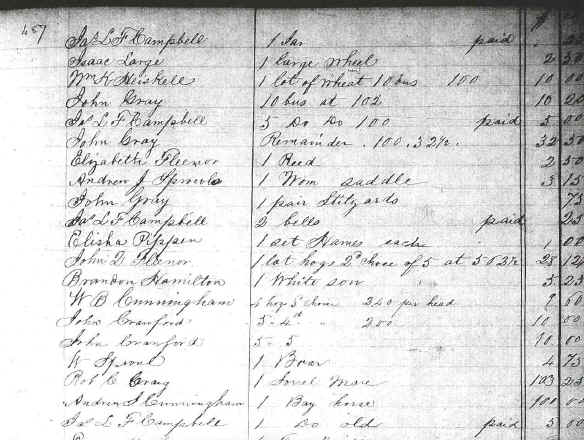 457 $
Jas L F Campbell 1 Jar paid 25
Isaac Large 1 large wheel 2 50
Wm K Heiskell 1 lot of wheat 10 bus 100 10 00
John Gray 10 bus at 102 10 20
Jas L F Campbell 5 Do Do 100 paid 5 00
John Gray Remainder . 100 . 32½ . 32 50
Elizabeth Fleenor 1 Reed 2 50
Andrew J Sproule 1 Wom saddle 3 15
John Gray 1 pair 75
Jas L F Campbell 2 bells paid 25
Elisha Pippen 1 set Hames each 1 00
John D Fleenor 1 lot hogs 2d choice of 5 at 5 62½ 28 12
Brandon Hamilton 1 White sow 5 25
W B Cunningham 4 hogs 3d choice 240 per head 9 60
John Cranford 5 - 4th " 200 10 00
John Cranford 5 - 5 10 00
W Sproul 1 Boar 4 75
Rob C Craig 1 Sorrel Mare 103 25
Andrew J Cunningham 1 Bay horse 100 00
Jas L F Campbell 1 Do old paid 5 00